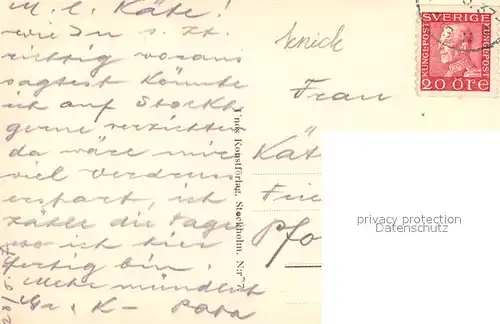 M. l. Käte!
wie Du s. Zt.
richtig voraus
sagtest könnte
ich auf Stockh
gerne verzichten
da wäre mir
viel Verdruss
erspart, ich
zähle die Tage
wo ich hier
fertig bin!
Mehr mündlich
Gr. K – Papa
Frau
Kät
Frie
Pfo
Konstförlag, Stockholm. N:r
SVERIGE
KUNGL POST
KUNGL POST
20 ÖRE
privacy protection
watermark